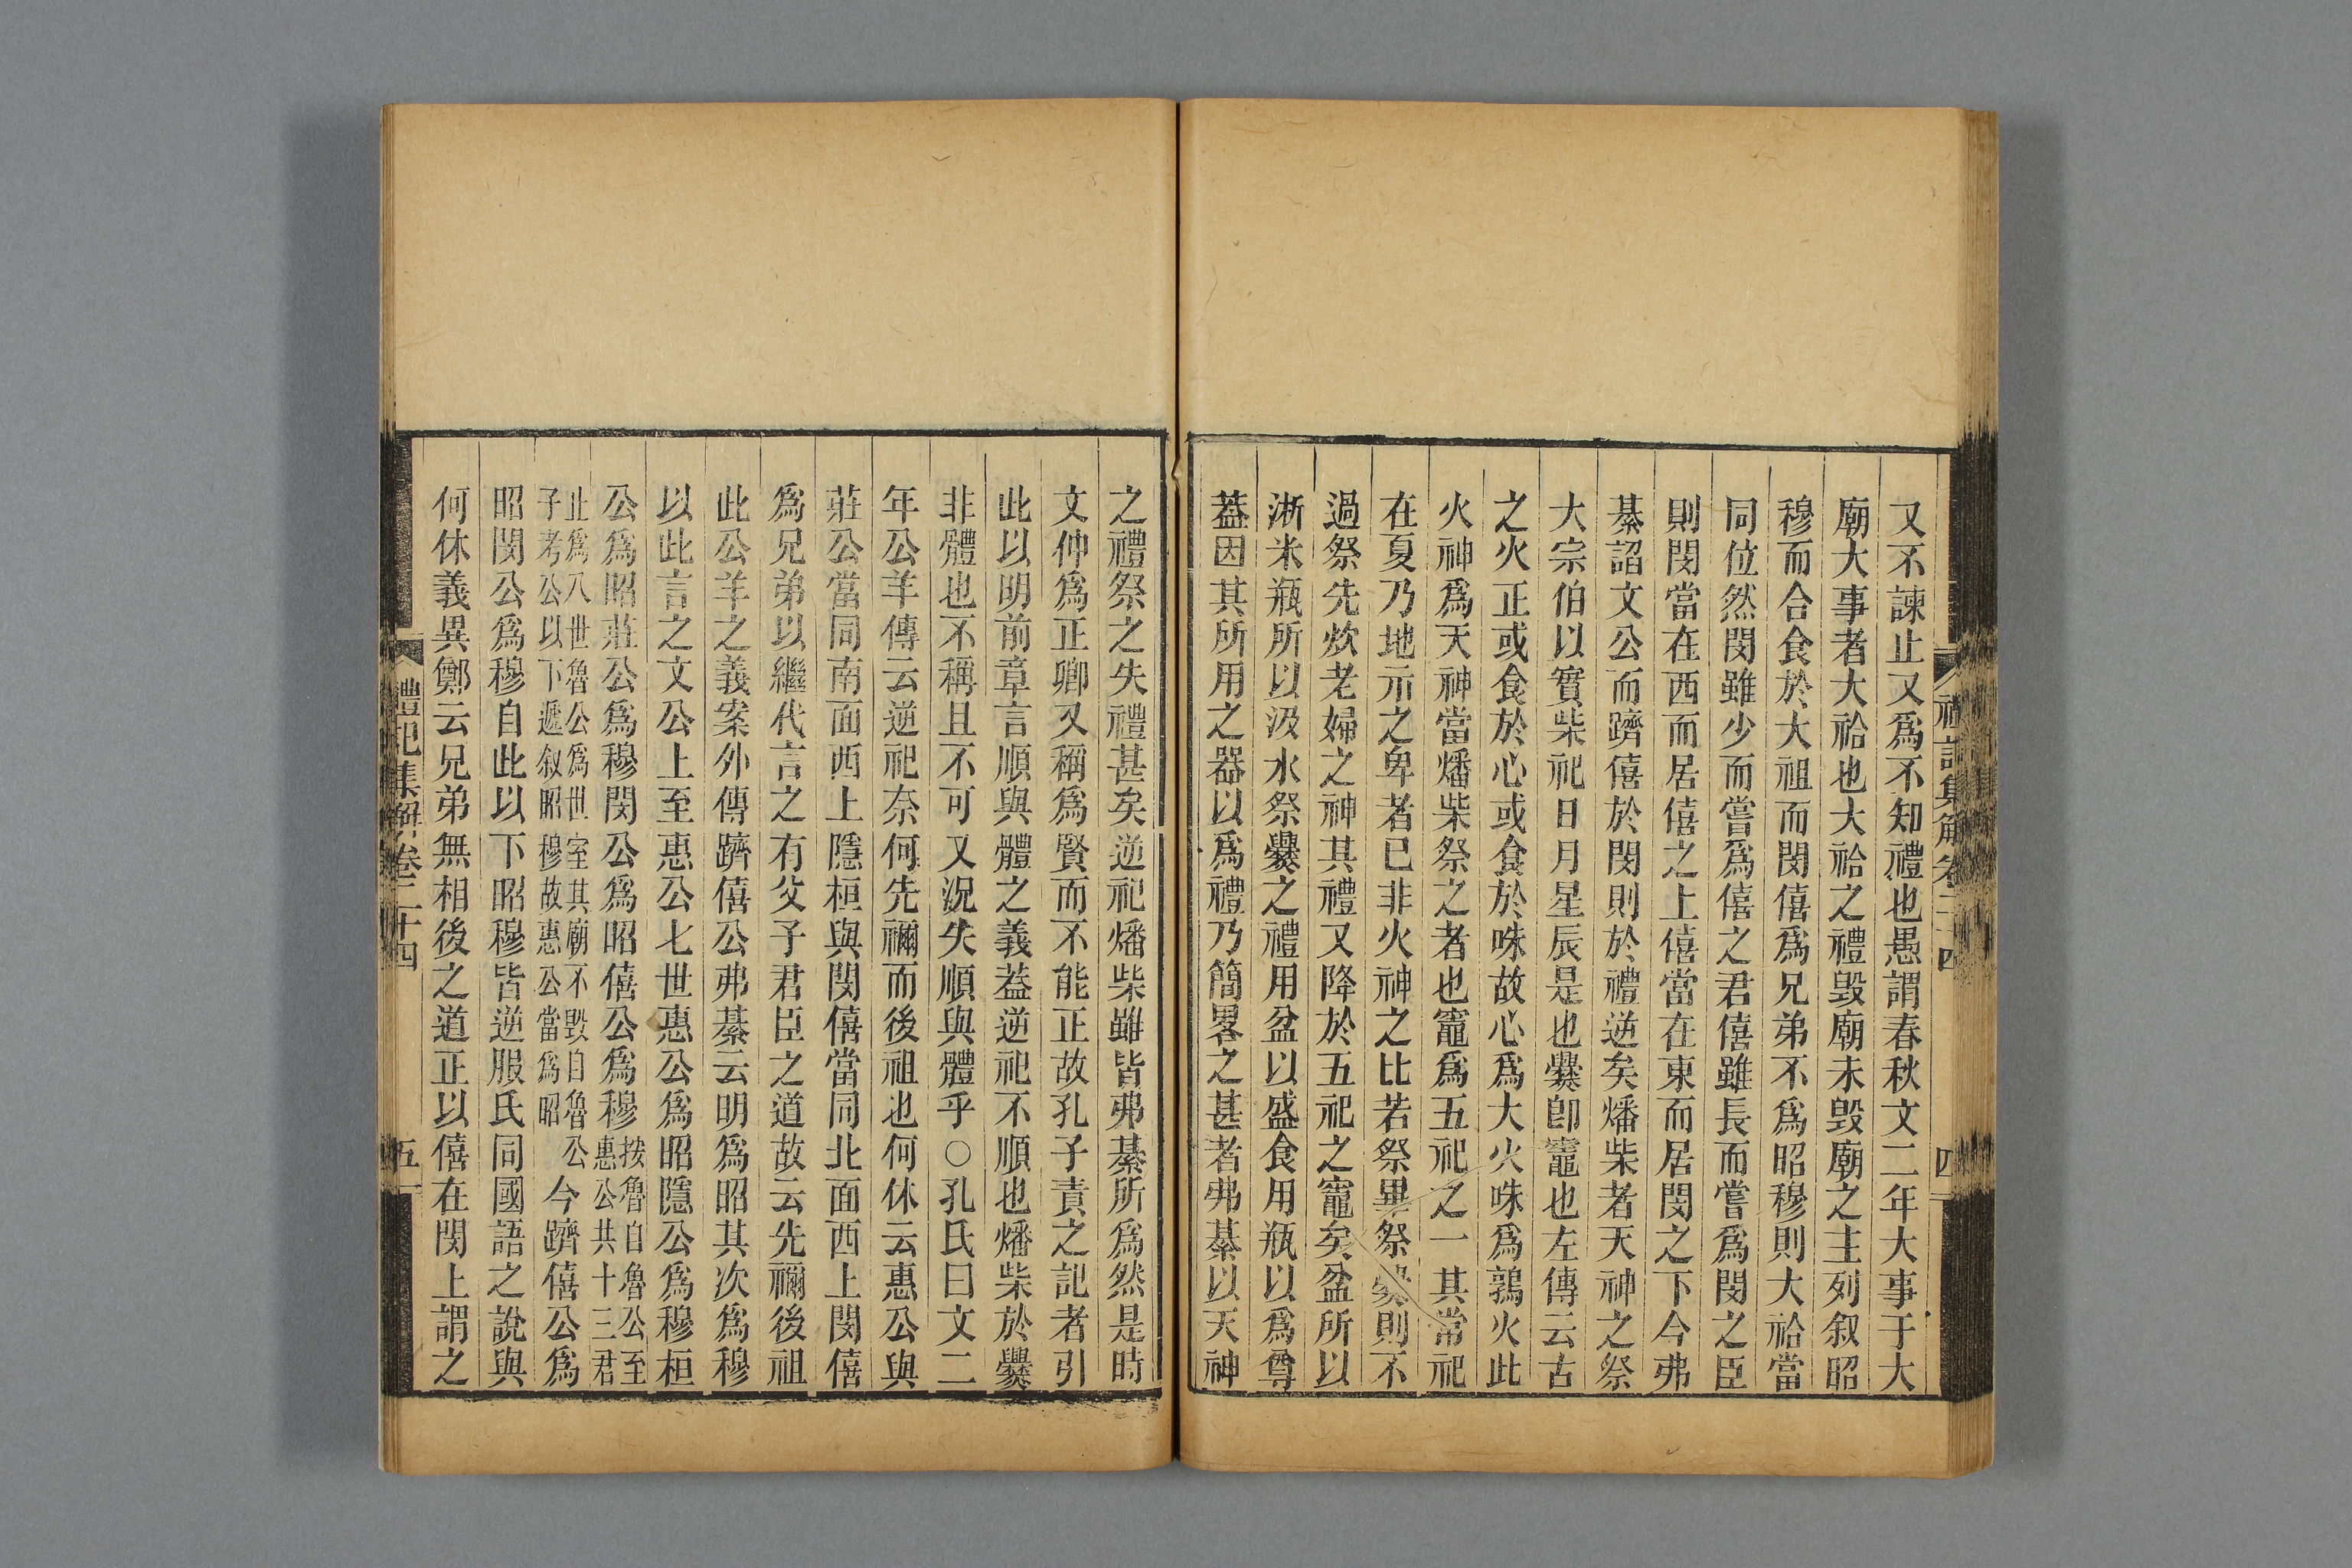 又不諫止又爲不知禮也愚謂春秋文二年大事于大
廟大事者大祫也大祫之禮毀廟未毀廟之主列叙昭
穆而合食於大祖而閔僖爲兄弟不爲昭穆則大祫當
同位然閔雖少而嘗爲僖之君僖雖長而嘗爲閔之臣
則閔當在西而居僖之上僖當在東而居閔之下今弗
綦謟文公而躋僖於閔則於禮逆矣燔柴者天神之祭
大宗伯以實柴祀日月星辰是也爨卽竈也左傳云古
之火正或食於心或食於咮故心爲大火咮爲鶉火此
火神爲天神當燔柴祭之者也竈爲五祀之一其常祀
在夏乃地示之卑者已非火神之比若祭畢祭爨則不
過祭先炊老婦之神其禮又降於五祀之竈矣盆所以
淅米瓶所以汲水祭爨之禮用盆以盛食用瓶以爲尊
葢因其所用之器以爲禮乃簡畧之甚者弗綦以天神
禮記集解卷二十四
四
之禮祭之失禮甚矣逆祀燔柴雖皆弗綦所爲然是時
文仲爲正卿又稱爲賢而不能正故孔子責之記者引
此以明前章言順與體之義葢逆祀不順也燔柴於爨
非體也不稱且不可又況失順與體乎○孔氏曰文二
年公羊傳云逆祀奈何先禰而後祖也何休云惠公與
莊公當同南面西上隱桓與閔僖當同北面西上閔僖
爲兄弟以繼代言之有父子君臣之道故云先禰後祖
此公羊之義案外傳躋僖公弗綦云明爲昭其次爲穆
以此言之文公上至惠公七世惠公爲昭隱公爲穆桓
公爲昭莊公爲穆閔公爲昭僖公爲穆按魯自魯公至惠公共十三君
止爲八世魯公爲世室其廟不毀自魯公子考公以下遞叙昭穆故惠公當爲昭今躋僖公爲
昭閔公爲穆自此以下昭穆皆逆服氏同國語之說與
何休義異鄭云兄弟無相後之道正以僖在閔上謂之
禮記集解卷二十四
五